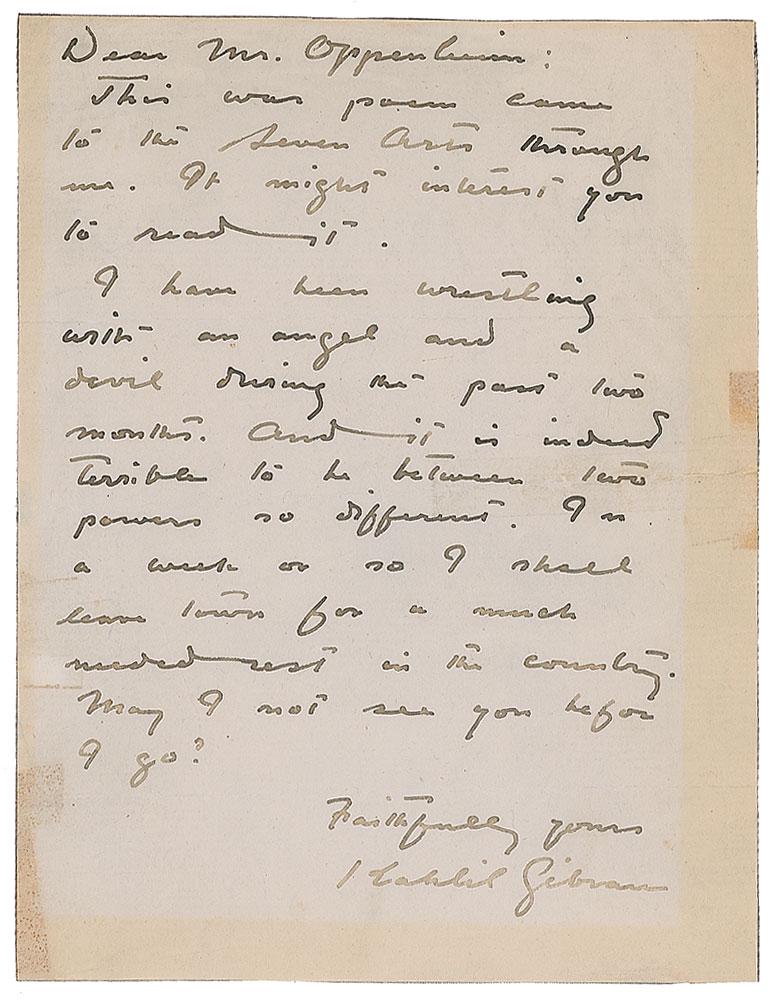 Dear Mr. Oppenheim:
This war poem came
to the Seven Arts through
me. It might interest you
to read it.
I have been wrestling
with an angel and a
devil during the past two
months. And it is indeed
terrible to be between two
powers so different. In
a week or so I shall
leave town for a much
needed rest in the country.
May I not see you before
I go?
Faithfully yours
Kahlil Gibran